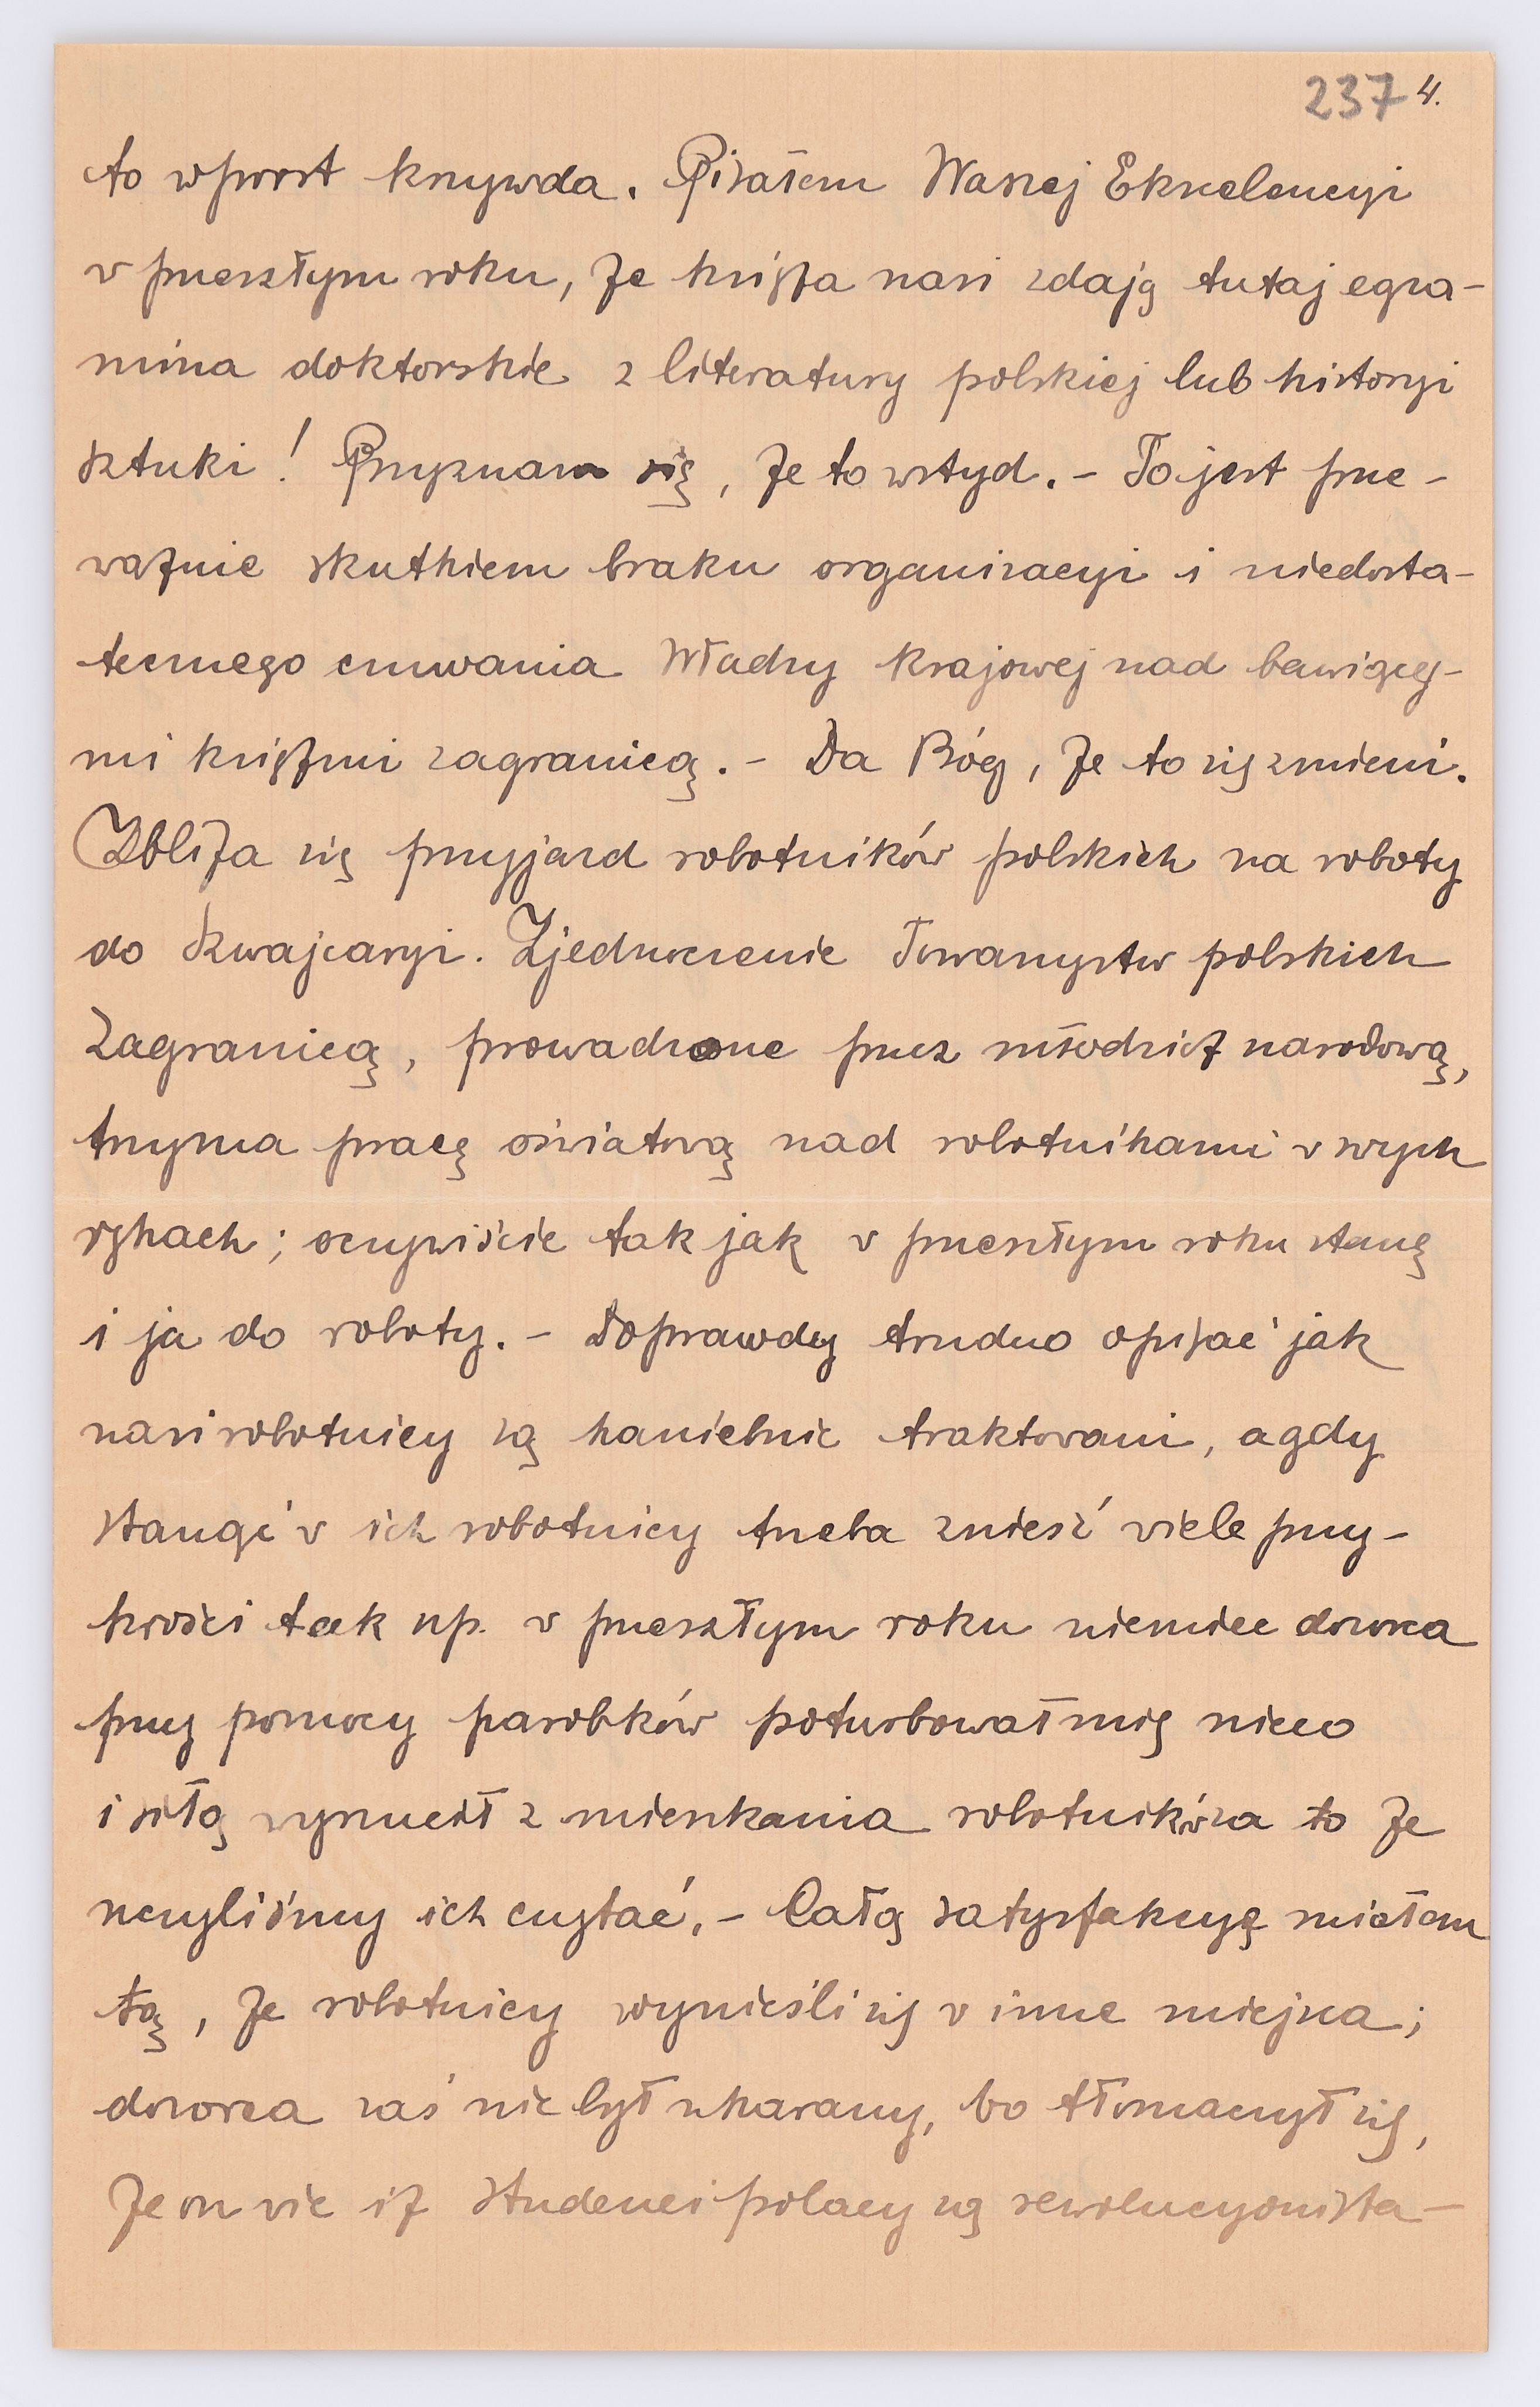 237 4.
to wprost krzywda. Pisałem Waszej Ekscelencyi
w przeszłym roku, że księża nasi zdają tutaj egza-
mina doktorskie z literatury polskiej lub historyi
sztuki! Przyznam się, że to wstyd. - To jest prze-
ważnie skutkiem braku organizacyi i niedosta-
tecznego czuwania Władzy krajowej nad bawiący-
mi księżmi zagranicą. - Da Bóg, że to się zmieni.
Zbliża się przyjazd robotników polskich na roboty
do Szwajcaryi. Zjednoczenie Towarzystw polskich
zagranicą, prowadzone przez młodzież narodową,
trzyma pracę oświatową nad robotnikami w swych
rękach; oczywiście tak jak w przeszłym roku stanę
i ja do roboty. - Doprawdy trudno opisać jak
nasi robotnicy są haniebnie traktowani, a gdy
stanąć w ich robotnicy trzeba znieść wiele przy-
krości tak np. w przeszłym roku niemiec dozorca
przy pomocy parobków poturbował mię nieco
i siłą wyrzucił z mieszkania robotników za to że
uczyliśmy ich czytać. - Całą satysfakcyę miałem
tą, że robotnicy wynieśli się w inne miejsca;
dozorca zaś nie był ukarany, bo tłomaczył się,
że on wie iż studenci polacy są rewolucyonista-